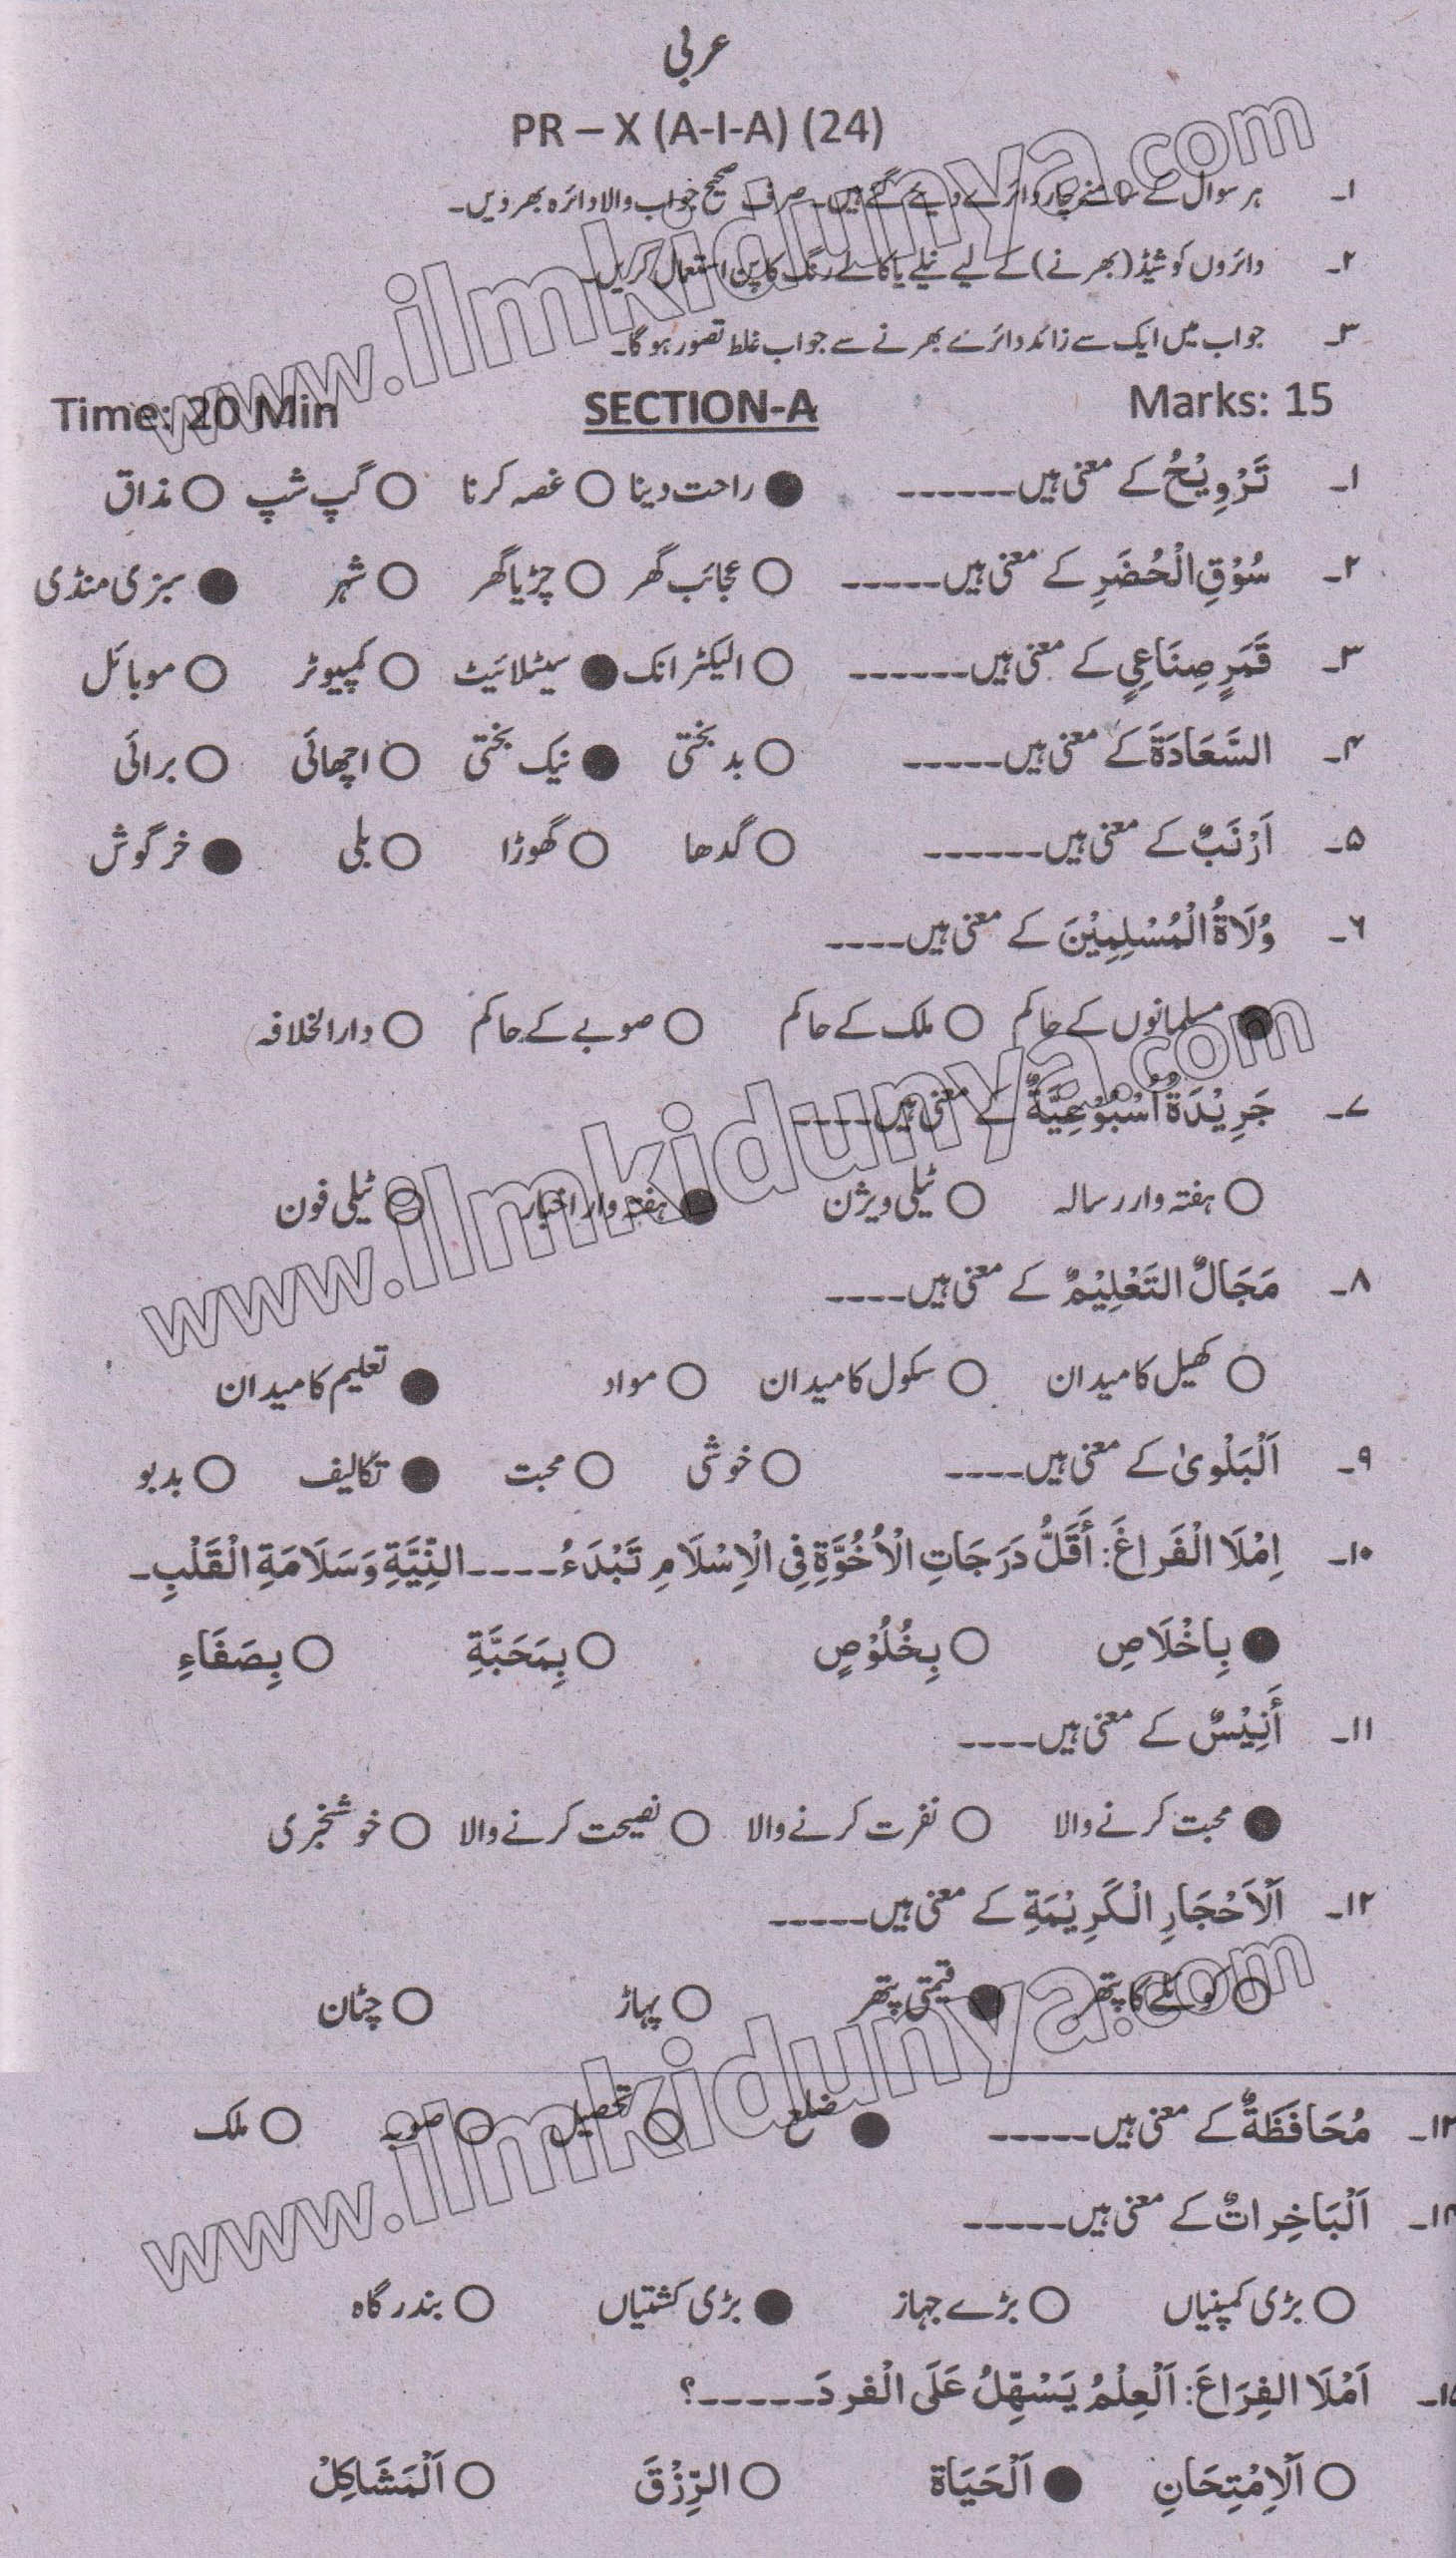 عربی
PR – X (A-I-A) (24)
۱۔ ہر سوال کے سامنے چار دائرے دیے گئے ہیں۔ صرف صحیح جواب والا دائرہ بھر دیں۔
۲۔ دائروں کو شیڈ (بھرنے) کے لیے نیلے یا کالے رنگ کا پن استعمال کریں۔
۳۔ جواب میں ایک سے زائد دائرے بھرنے سے جواب غلط تصور ہو گا۔
Time: 20 Min SECTION-A Marks: 15
۱۔ تَرْوِیْحُ کے معنی ہیں------ ● راحت دینا ○ غصہ کرنا ○ گپ شپ ○ مذاق
۲۔ سُوْقِ الْحُضَرِ کے معنی ہیں----- ○ عجائب گھر ○ چڑیا گھر ○ شہر ● سبزی منڈی
۳۔ قَمَرٍ صِنَاعِیٍ کے معنی ہیں------ ○ الیکٹرانک ● سیٹلائیٹ ○ کمپیوٹر ○ موبائل
۴۔ السَّعَادَةَ کے معنی ہیں----- ○ بد بختی ● نیک بختی ○ اچھائی ○ برائی
۵۔ اَرْنَبٌ کے معنی ہیں------ ○ گدھا ○ گھوڑا ○ بلی ● خرگوش
۶۔ وُلَاةُ الْمُسْلِمِیْنَ کے معنی ہیں----
● مسلمانوں کے حاکم ○ ملک کے حاکم ○ صوبے کے حاکم ○ دارالخلافہ
۷۔ جَرِیْدَةٌ اُسْبُوْعِیَّةٌ کے معنی ہیں-----
○ ہفتہ وار رسالہ ○ ٹیلی ویژن ● ہفتہ وار اخبار ○ ٹیلی فون
۸۔ مَجَالٌ التَعْلِیْمٌ کے معنی ہیں----
○ کھیل کا میدان ○ سکول کا میدان ○ مواد ● تعلیم کا میدان
۹۔ اَلْبَلْویٰ کے معنی ہیں---- ○ خوشی ○ محبت ● تکالیف ○ بدبو
۱۰۔ اِمْلَا الْفَراغَ: أَقَلُّ دَرَجَاتِ الْاُخُوَّةِ فِی الْاِسْلَامِ تَبْدَءُ-----النِّیَّةِ وَسَلَامَةِ الْقَلْبِ۔
● بِاخْلَاصِ ○ بِخُلُوْصٍ ○ بِمَحَبَّةِ ○ بِصَفَاءِ
۱۱۔ أَنِیْسٌ کے معنی ہیں----
● محبت کرنے والا ○ نفرت کرنے والا ○ نصیحت کرنے والا ○ خوشخبری
۱۲۔ اَلْاَحْجَارِ الْکَرِیْمَةِ کے معنی ہیں-----
○ کوئلے کا پتھر ● قیمتی پتھر ○ پہاڑ ○ چٹان
۱۳۔ مُحَافَظَةٌ کے معنی ہیں----- ● ضلع ○ تحصیل ○ صوبہ ○ ملک
۱۴۔ اَلْبَاخِراتٌ کے معنی ہیں-----
○ بڑی کمپنیاں ○ بڑے جہاز ● بڑی کشتیاں ○ بندر گاہ
۱۵۔ اَمْلَا الفِرَاغَ: اَلْعِلْمُ یَسْهِّلُ عَلَی الْفردَ-----؟
○ اَلْاِمْتِحَانِ ● اَلْحَیَاة ○ الرِّزْقَ ○ اَلْمَشَاکِلْ
www.ilmkidunya.com
www.ilmkidunya.com
www.ilmkidunya.com